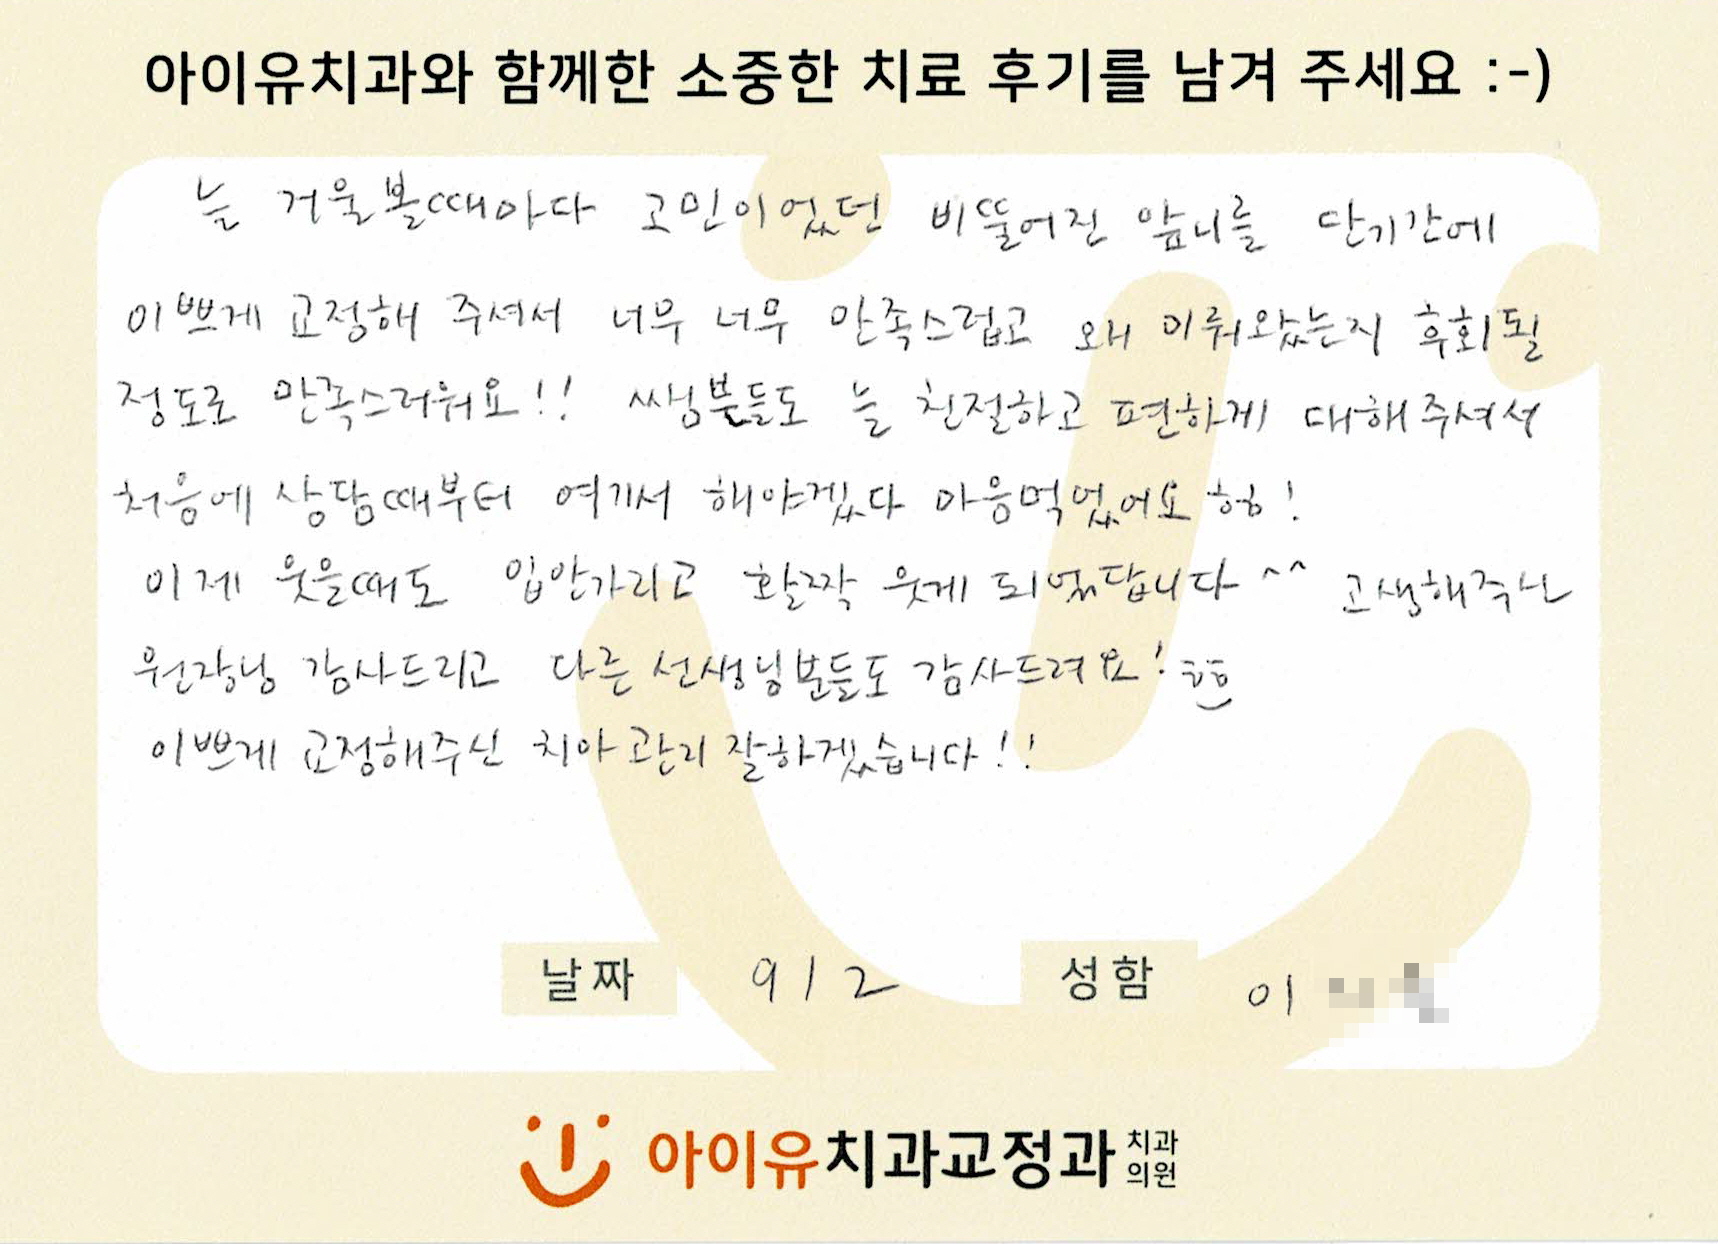 아이유치과와 함께한 소중한 치료 후기를 남겨 주세요 :-)
늘 거울볼때마다 고민이었던 비뚤어진 앞니를 단기간에
이쁘게 교정해 주셔서 너무 너무 만족스럽고 왜 미뤄왔는지 후회될
정도로 만족스러워요!! 쌤분들도 늘 친절하고 편하게 대해주셔서
처음에 상담때부터 여기서 해야겠다 마음먹었어요 ㅎㅎ!
이제 웃을때도 입안가리고 활짝 웃게 되었답니다 ^^ 고생해주신
원장님 감사드리고 다른 선생님분들도 감사드려요!
이쁘게 교정해주신 치아 관리 잘하겠습니다!!
날짜 9 / 2 성함 이
아이유치과교정과 치과
의원